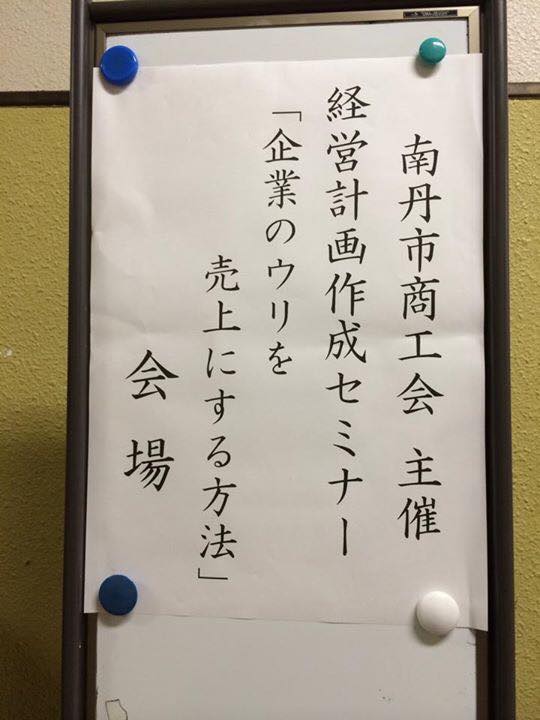 南丹市商工会 主催
経営計画作成セミナー
「企業のウリを
売上にする方法」
会場